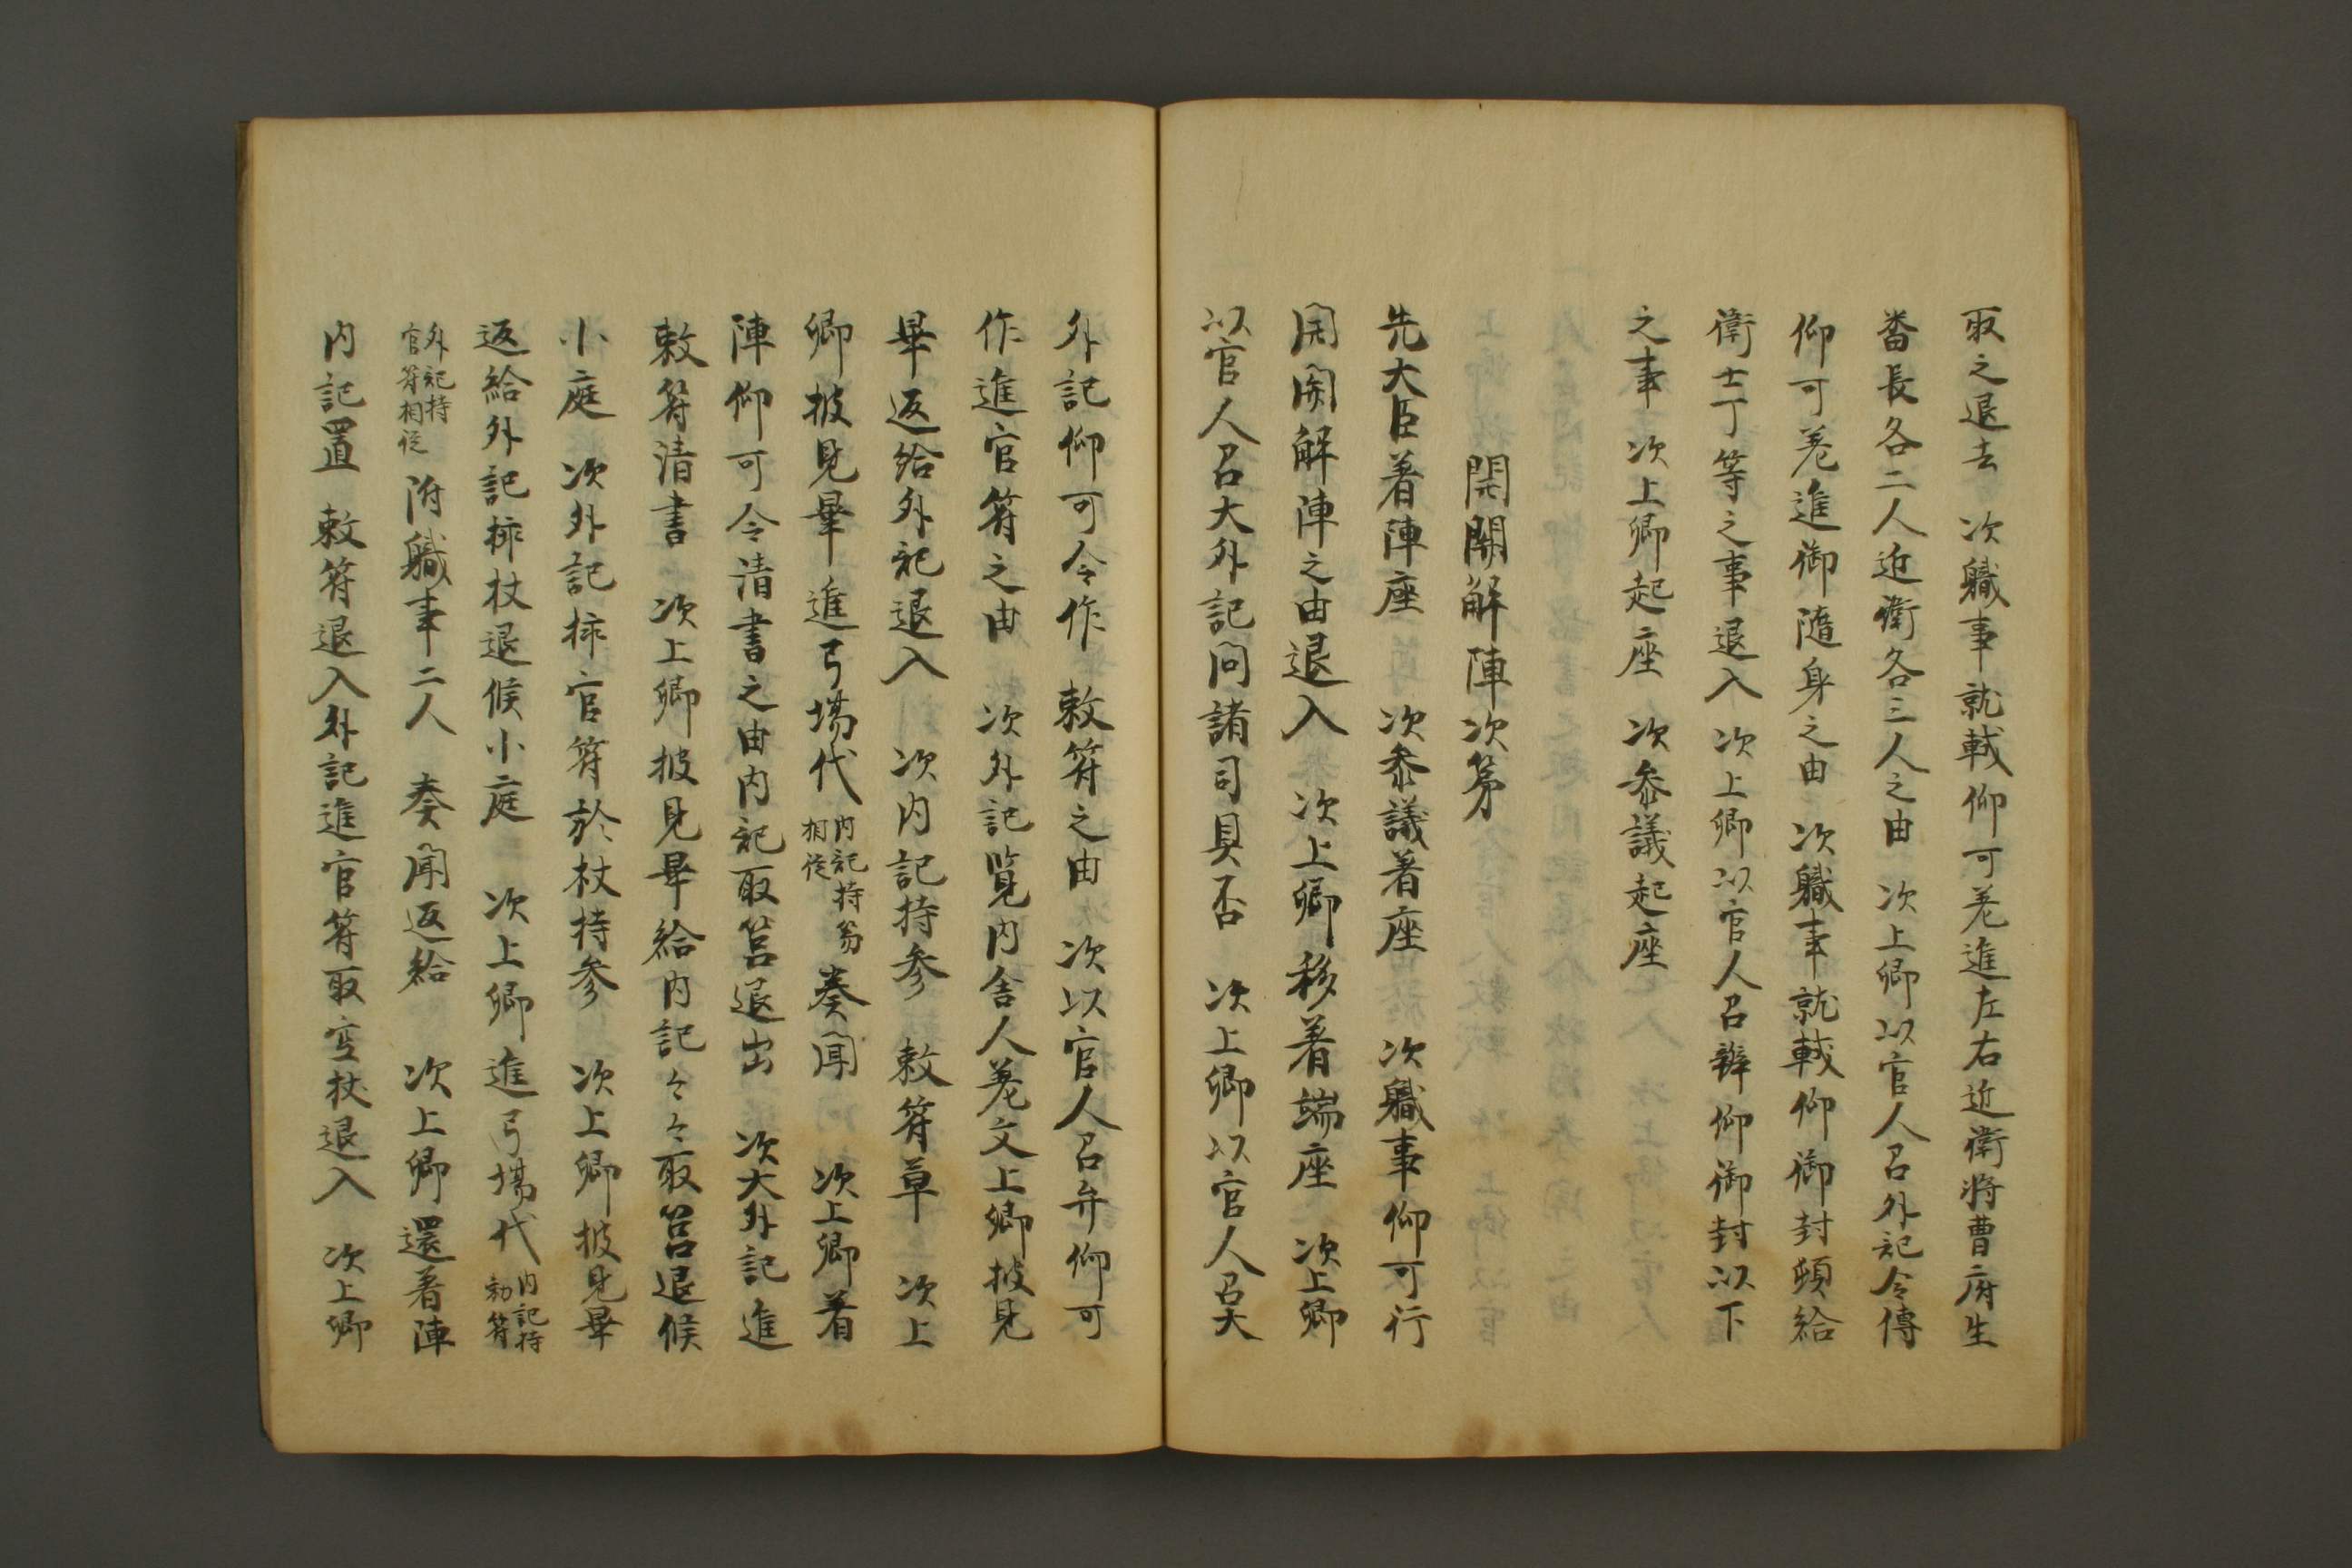 取之退去　次職事就軾仰可差進左右近衛将曹府生
番長各二人近衛各三人之由　次上卿以官人召外記令傳
仰可差進御随身之由　次職事就軾仰御封頓給
衛士丁等之事退入　次上卿以官人召辨仰御封以下
之事　次上卿起座　次参議起座
開關解陣次第
先大臣着陣座　次参議着座　次職事仰可行
開關解陣之由退入　次上卿移着端座　次上卿
以官人召大外記問諸司具否　次上卿以官人召大
外記仰可令作　敕符之由　次以官人召弁仰可
作進官符之由　次外記覧内舎人差文上卿披見
畢返給外記退入　次内記持参　敕符草　次上
卿披見畢進弓場代内記持筥相従　奏聞　次上卿着
陣仰可令清書之由内記取筥退出　次大外記進
敕符清書　次上卿披見畢給内記々々取筥退候
小庭　次外記挿官符於杖持参　次上卿披見畢
返給外記挿杖退候小庭　次上卿進弓場代内記持勅符
外記持官符相従　附職事二人　奏聞返給　次上卿還着陣
内記置　敕符退入外記進官符取空杖退入　次上卿